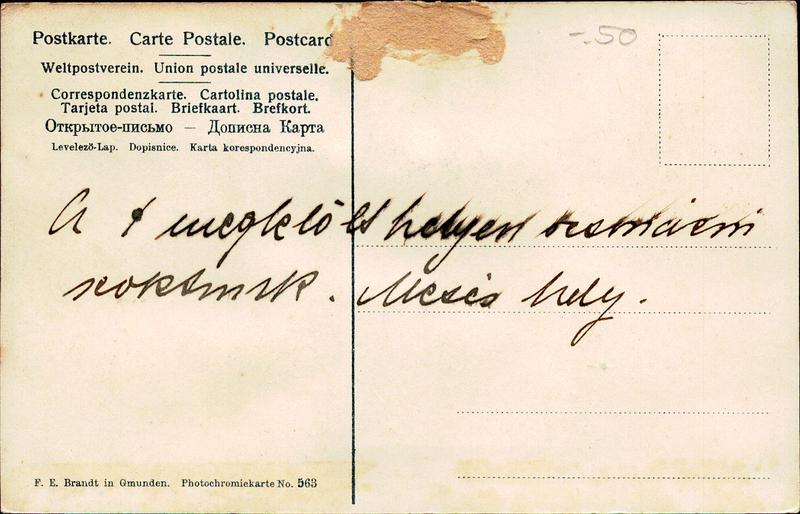 Postkarte. Carte Postale. Postcard
Weltpostverein. Union postale universelle.
Correspondenzkarte. Cartolina postale.
Tarjeta postal. Briefkaart. Brefkort.
Открытое-письмо — Дописна Карта
Levelező-Lap. Dopisnice. Karta korespondencyjna.
-.50
A megjelölt helyen
szoktunk. Mesés hely.
F. E. Brandt in Gmunden. Photochromiekarte No. 563